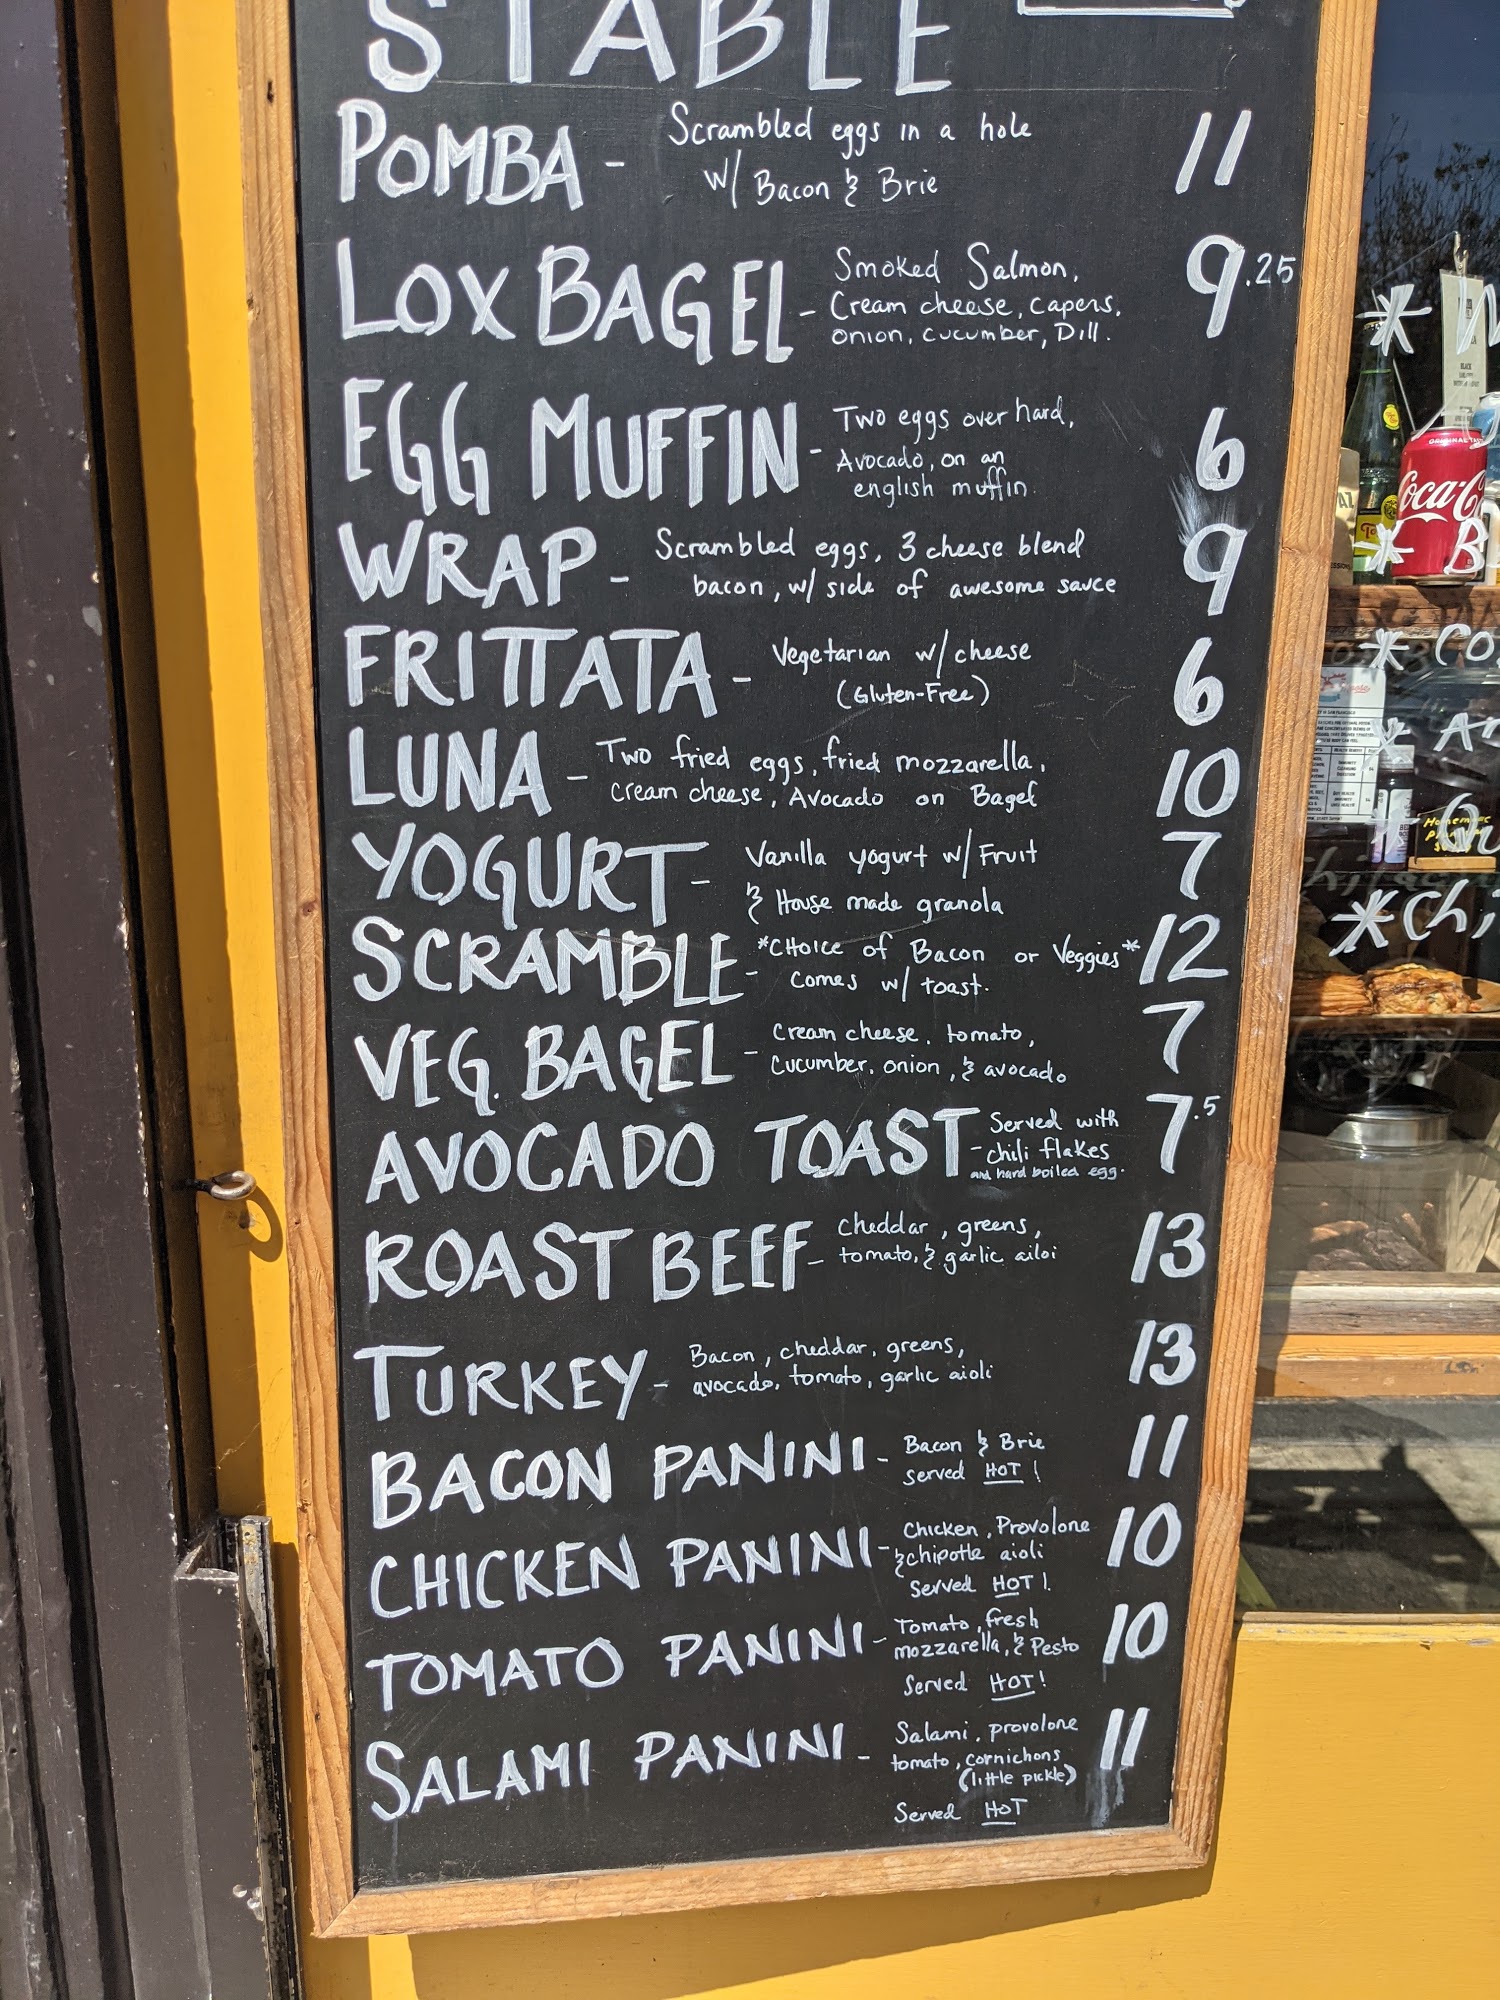 STABLE
POMBA - Scrambled eggs in a hole 11
w/ Bacon & Brie
LOX BAGEL - Smoked Salmon, 9.25
Cream cheese, capers,
onion, cucumber, Dill.
EGG MUFFIN - Two eggs over hard, 6
Avocado, on an
english muffin
WRAP - Scrambled eggs, 3 cheese blend 9
bacon, w/ side of awesome sauce
FRITTATA - Vegetarian w/ cheese 6
(Gluten-Free)
LUNA - Two fried eggs, fried mozzarella, 10
cream cheese, Avocado on Bagel
YOGURT - Vanilla yogurt w/ Fruit 7
& House made granola
SCRAMBLE - *CHoice of Bacon or Veggies* 12
comes w/ toast.
VEG. BAGEL - cream cheese, tomato, 7
cucumber, onion, & avocado
AVOCADO TOAST - Served with 7.5
chili flakes
and hard boiled egg.
ROAST BEEF - cheddar, greens, 13
tomato, & garlic ailoi
TURKEY - Bacon, cheddar, greens, 13
avocado, tomato, garlic aioli
BACON PANINI - Bacon & Brie 11
served HOT!
CHICKEN PANINI - Chicken, Provolone 10
& chipotle aioli
Served HOT!
TOMATO PANINI - Tomato, fresh 10
mozzarella, & Pesto
Served HOT!
SALAMI PANINI - Salami, provolone 11
tomato, cornichons
(little pickle)
Served HOT
Coca-C
* B
* Co
* Ar
* Chi
Homemade